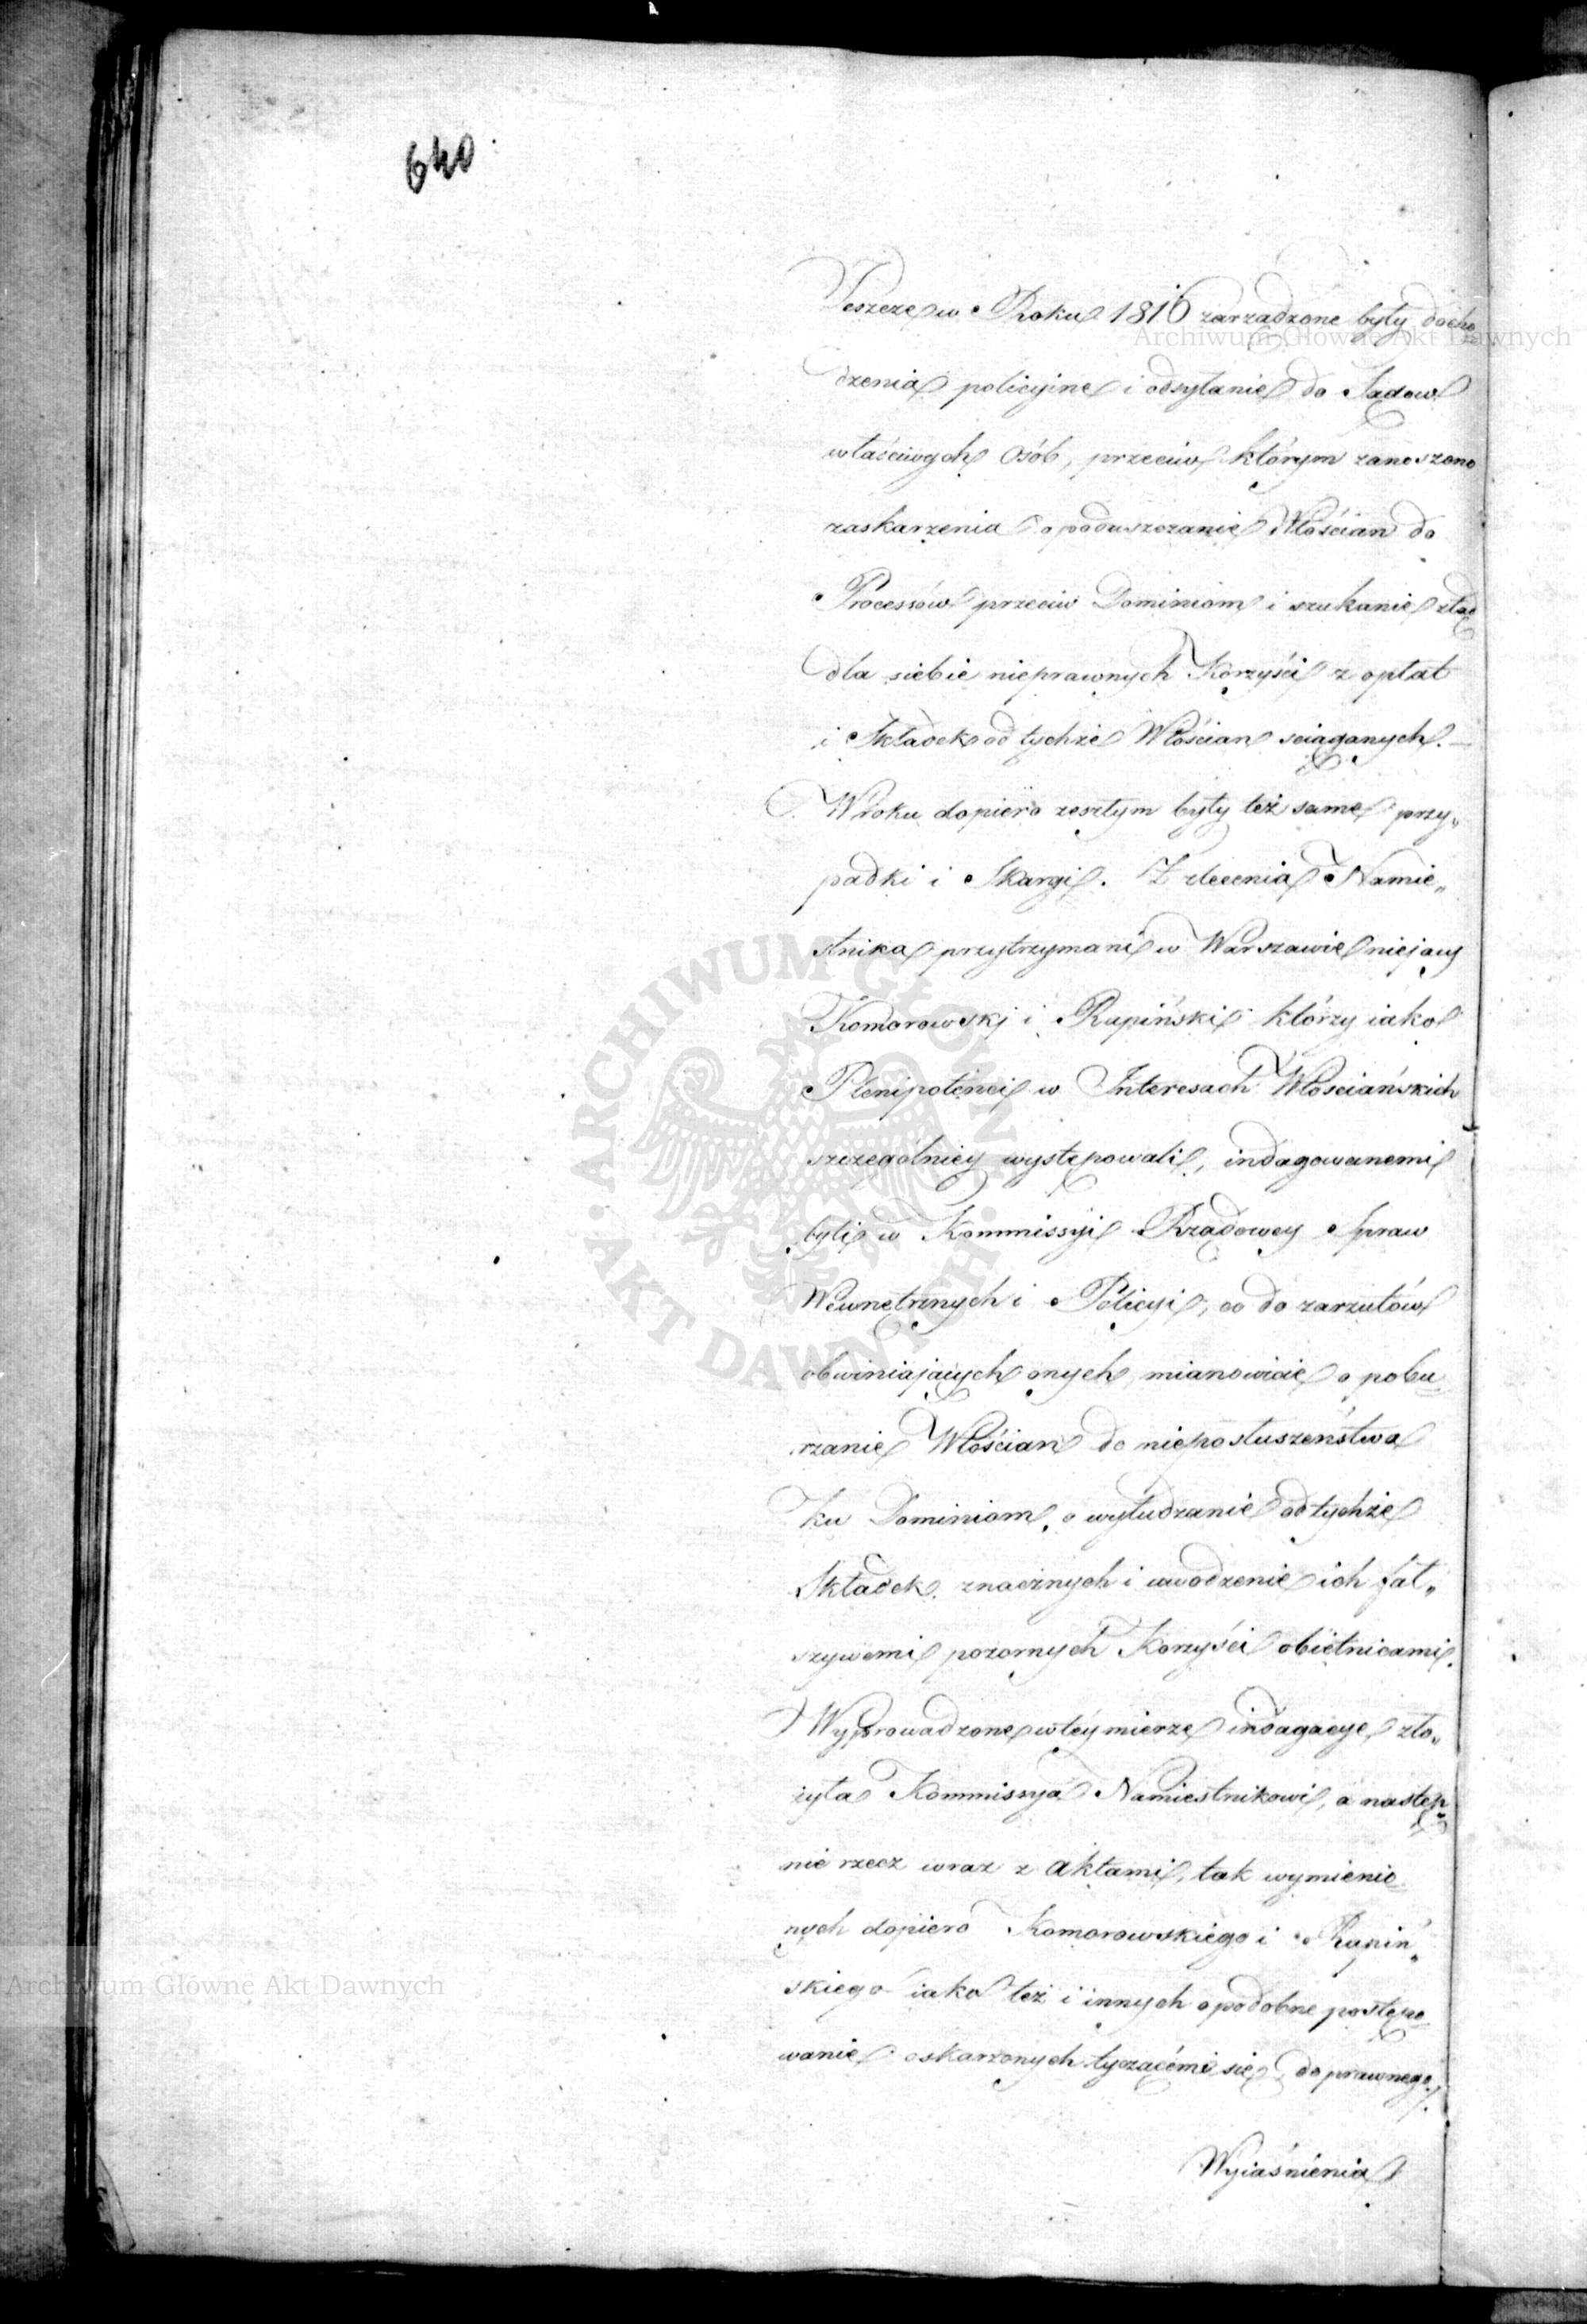 640
Jeszcze w Roku 1816 zarządzone były docho
dzenia policyjne i odsyłanie do Sądow
właściwych Osób, przeciw którym zanoszono
zaskarzenia o poduszczanie Włościan do
Processów przeciw Dominiom i szukanie ztąd
dla siebie nieprawnych Korzyści z opłat
i Składek od tychże Włościan sciąganych.—
W roku dopiero zeszłym były też same przy„
padki i Skargi. Z zlecenia Namie„
stnika przytrzymani w Warszawie niejacy
Komorowski i Rupiński którzy iako
Plenipotenci w Interesach Włościańskich
szczególniey występowali, indagowanemi
byli w Kommissyi Rządowey Spraw
Wewnętrznych i Policyi, co do zarzutów
obwiniających onych, mianowicie o pobu
rzanie Włościan do nieposłuszeństwa
ku Dominiom, o wyłudzanie od tychże
Składek znacznych i uwodzenie ich fał„
szywemi pozornych Korzyści obietnicami.
Wyprowadzone w téy mierze indagacye zło„
żyła Kommissya Namiestnikowi, a następ
nie rzecz wraz z Aktami, tak wymienio
nych dopiero Komorowskiego i Rupiń„
skiego iako też i innych o podobne postępo
wanie oskarzonych tyczącémi się, do prawnego
Wyiaśnienia
Archiwum Główne Akt Dawnych
ARCHIWUM GŁÓWNE AKT DAWNYCH
Archiwum Główne Akt Dawnych